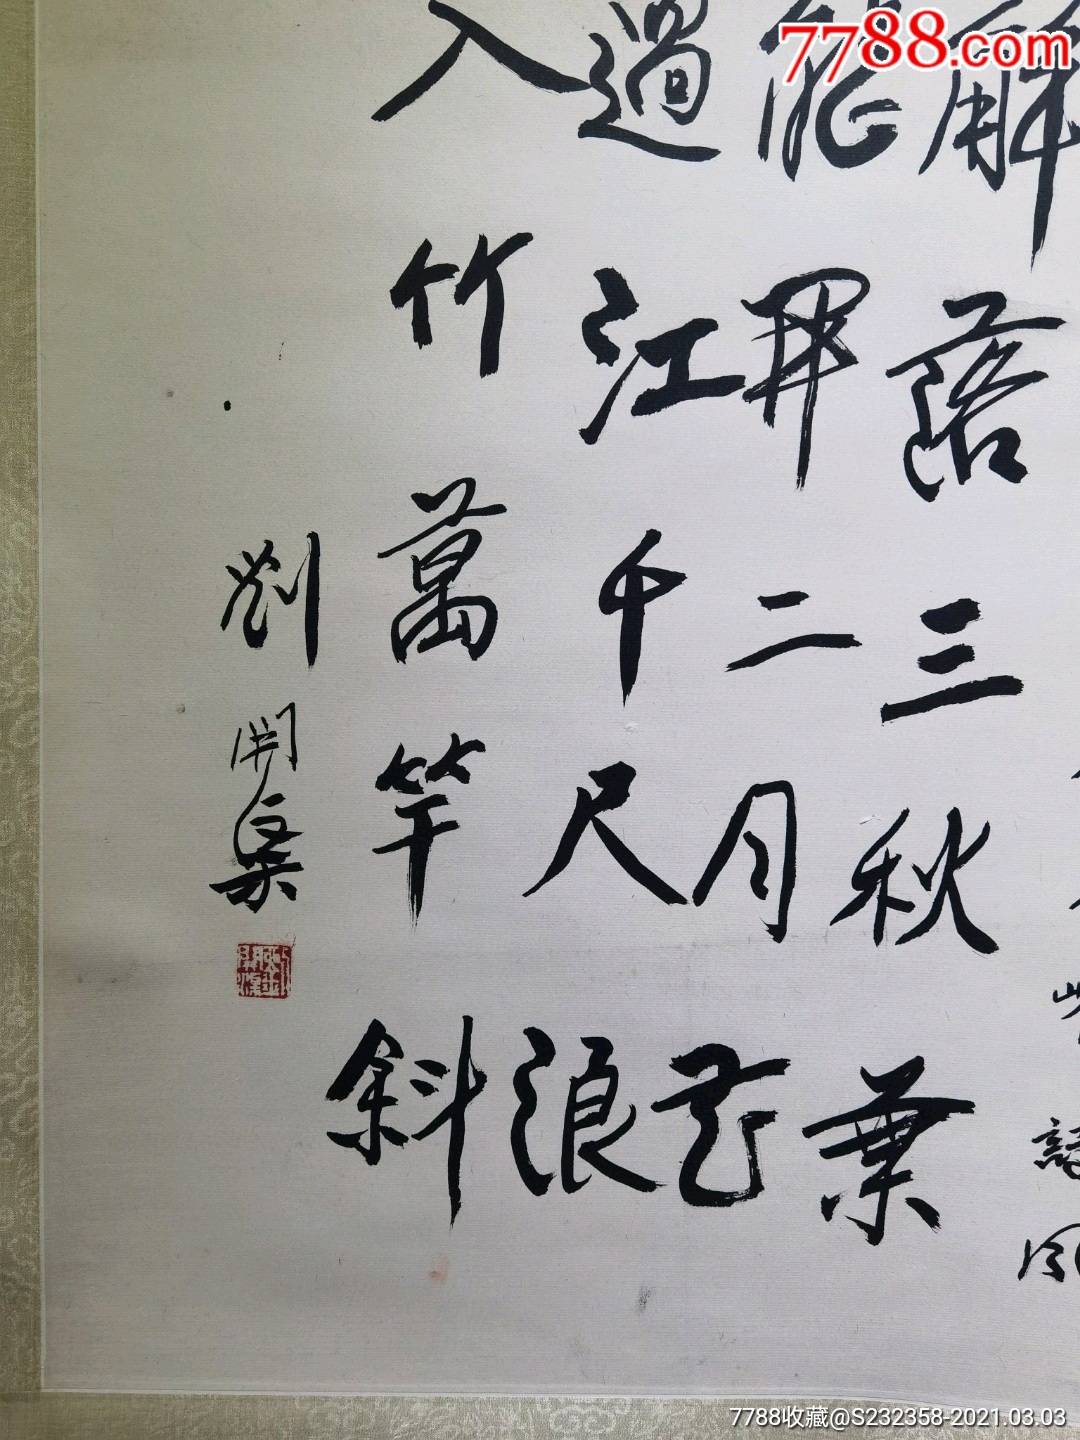 7788.com
解落三秋葉
能開二月花
過江千尺浪
入竹萬竿斜
劉開渠
7788收藏@S232358-2021.03.03